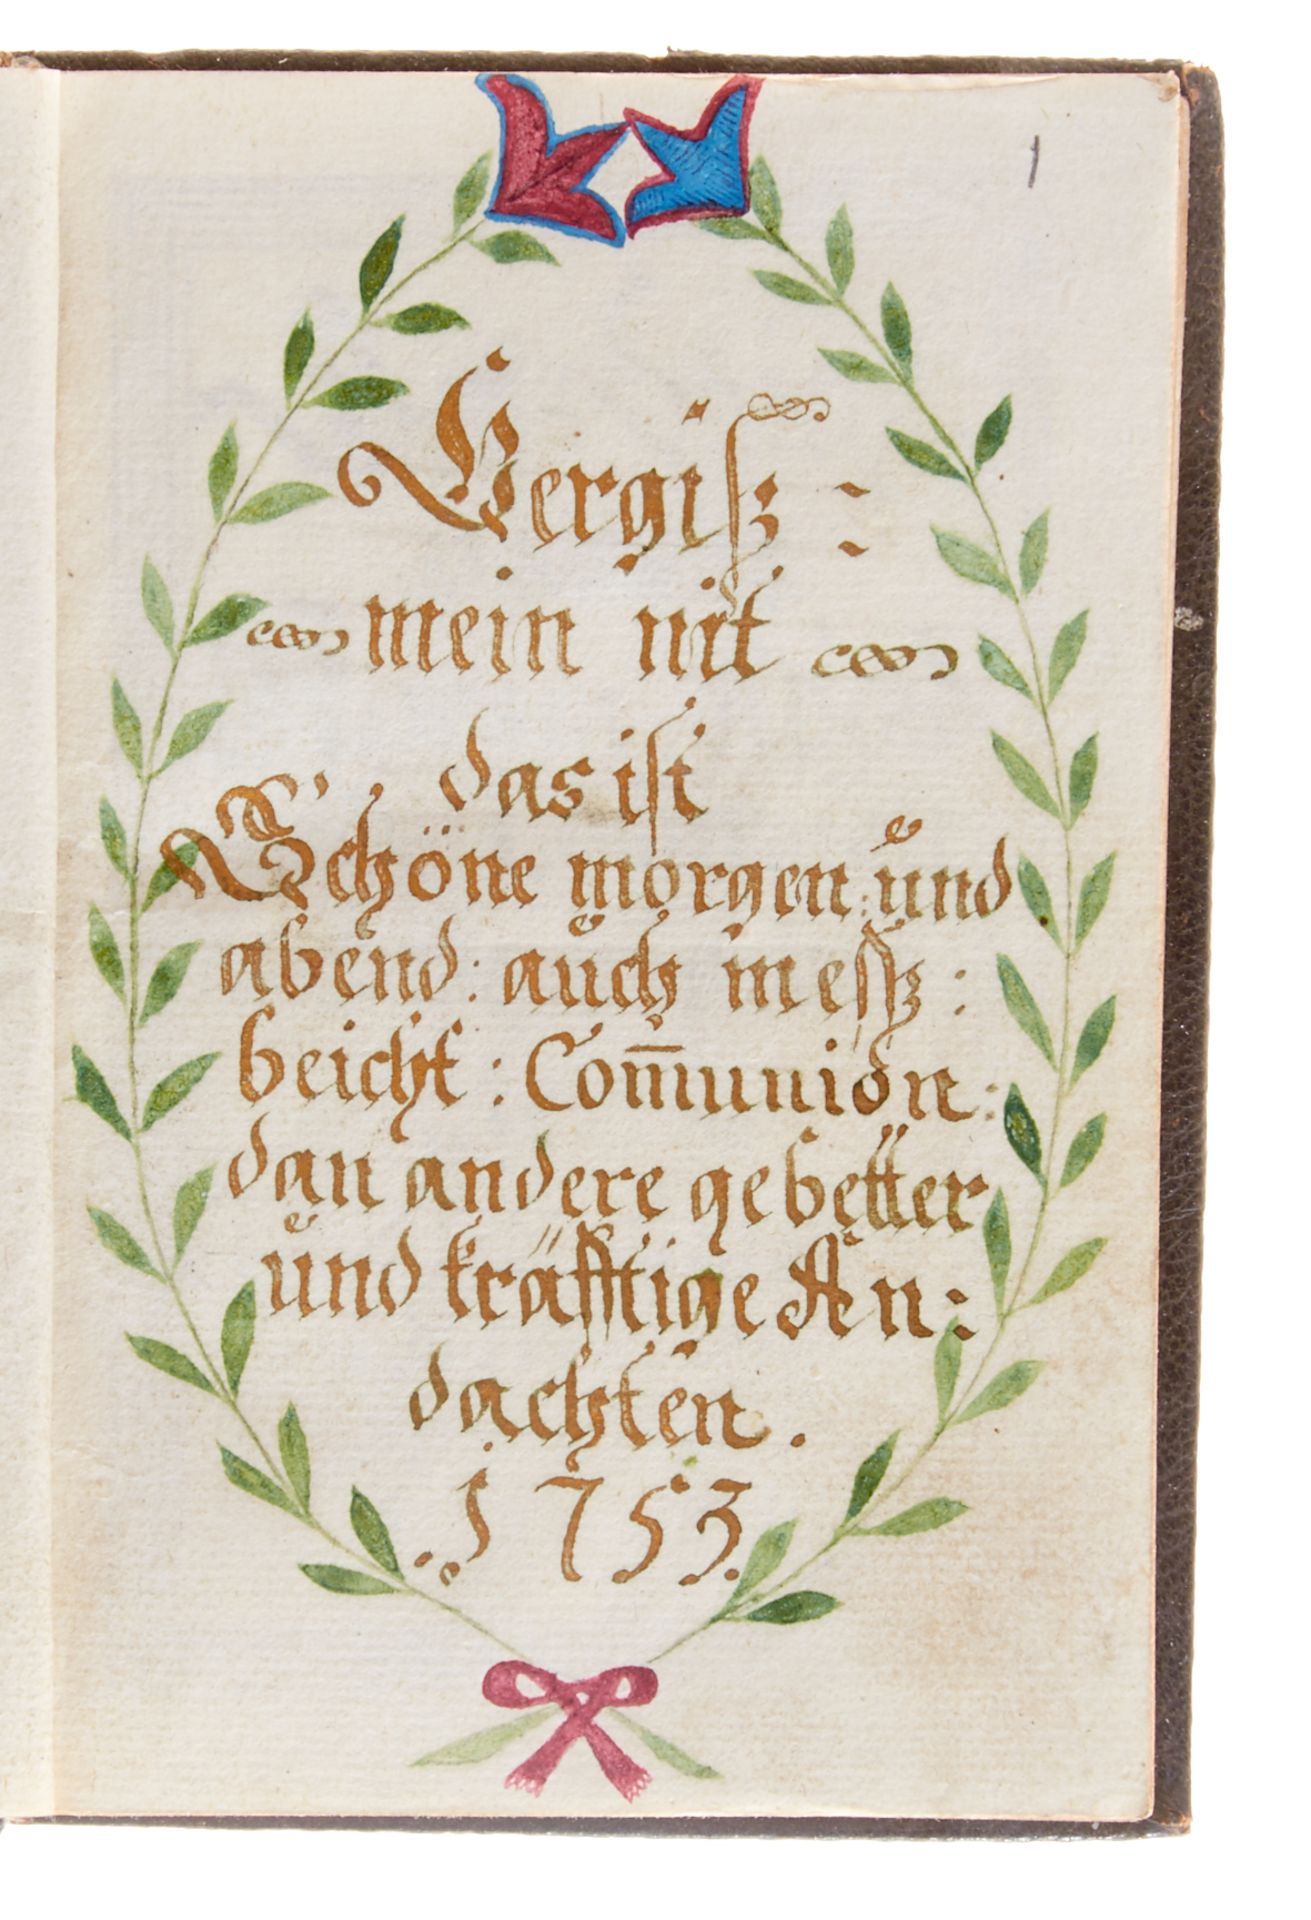 1
Vergiß:
mein nit
das ist
Schöne morgen: und
abend: auch mess:
beicht: Com̅union:
dan andere gebetter
und kräfftige An:
dachten.
.1753.